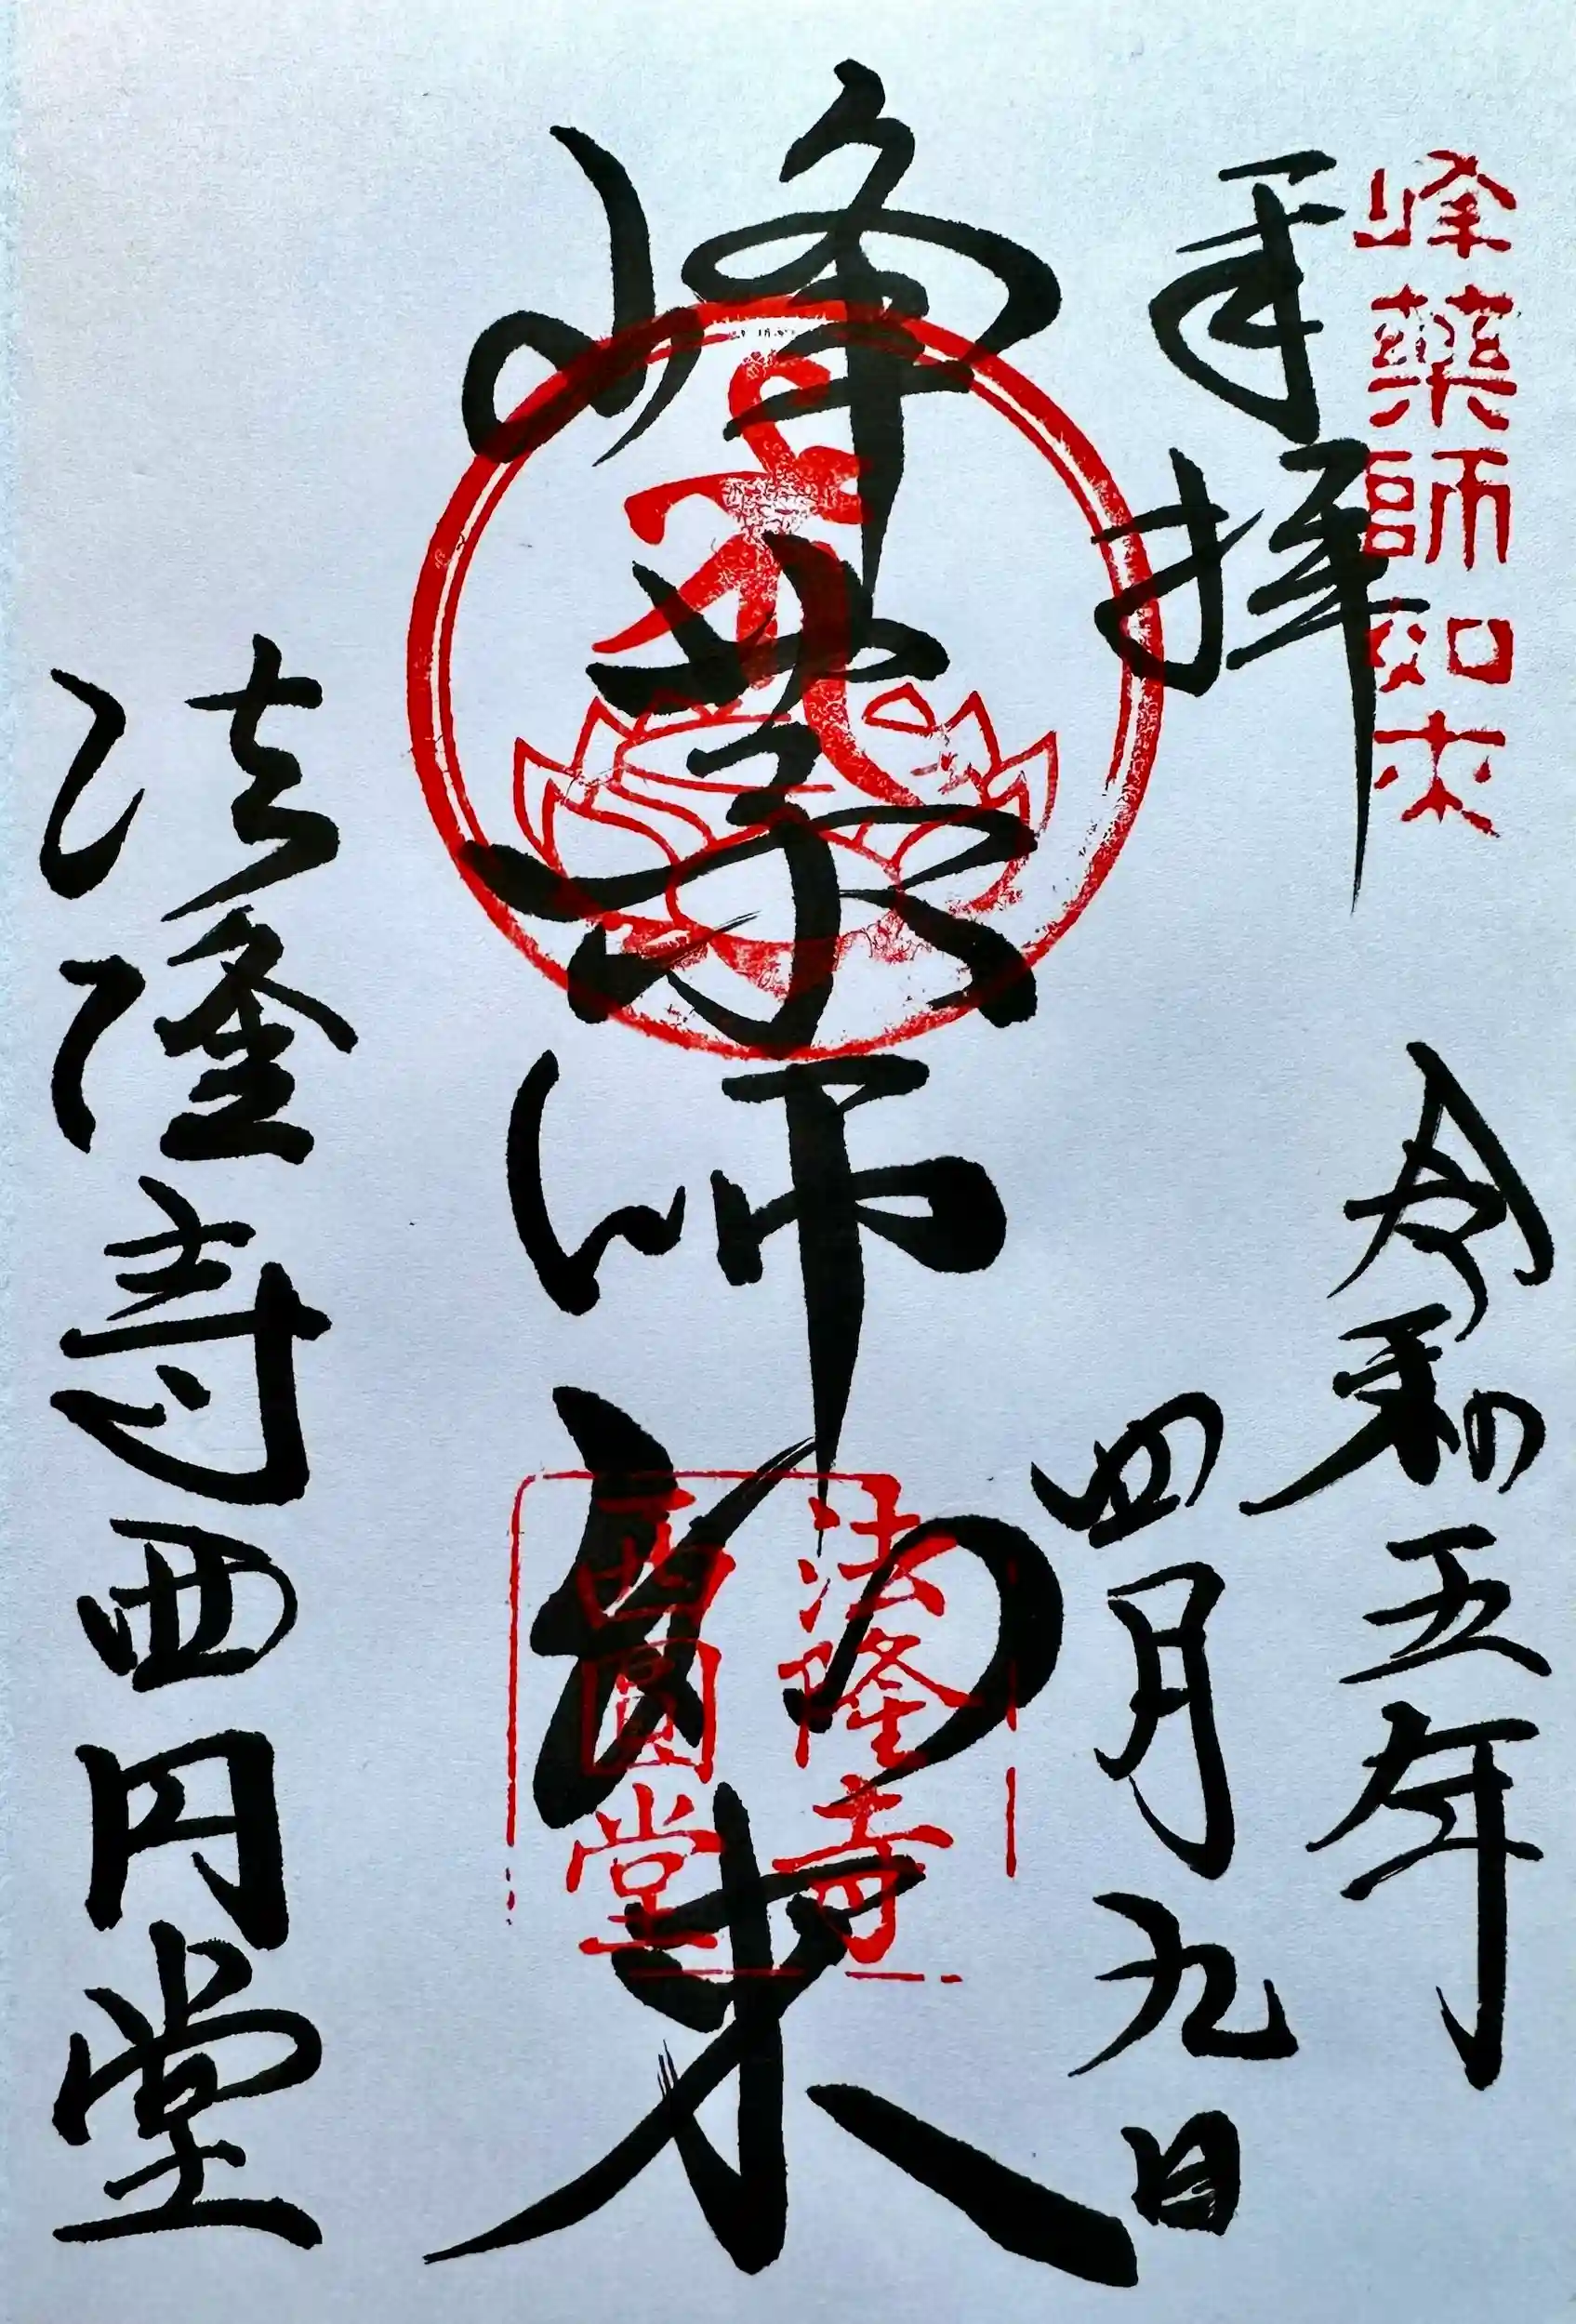 峰薬師如来
奉拝
令和五年
四月九日
峰薬師如来
法隆寺
西圓堂
法隆寺西円堂